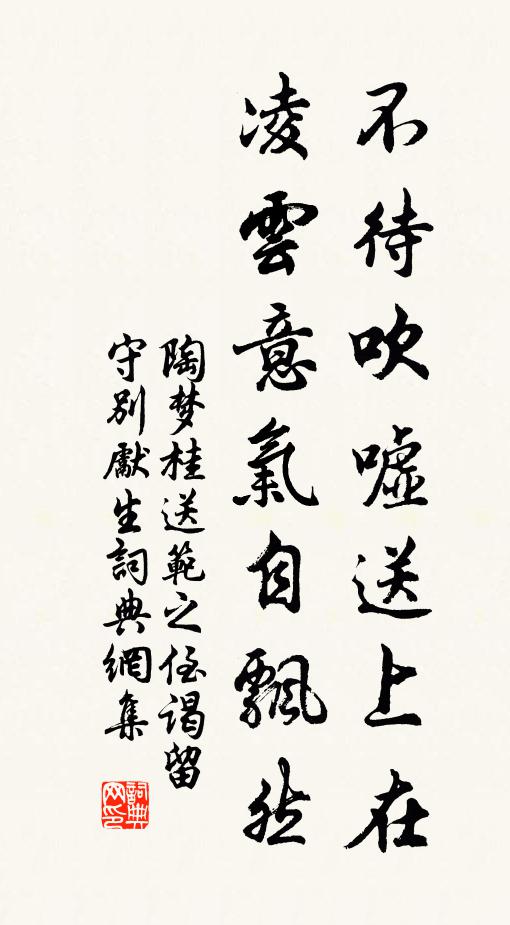 不待吹噓送上在
凌雲意氣自飄然
陶梦桂送範之侄谒留
守别獻生詞典網集
詞典
网印